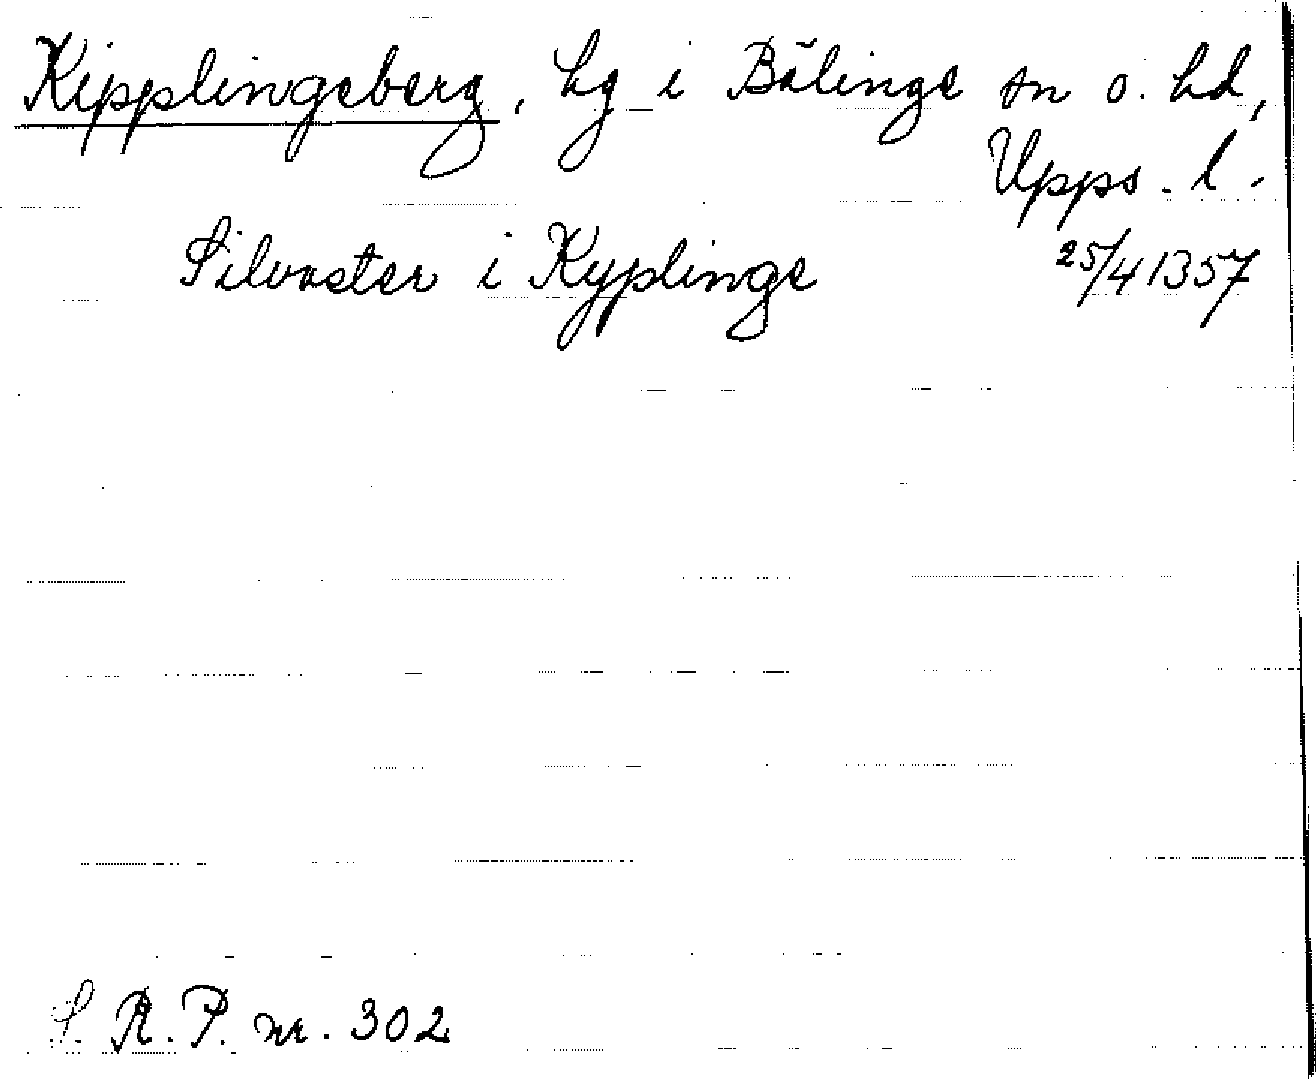 Kipplingeberg, hg i Bälinge sn o. hd,
Upps. l.
Silvaster i Kyplinge 25/4 1357
S. R. P. nr. 302